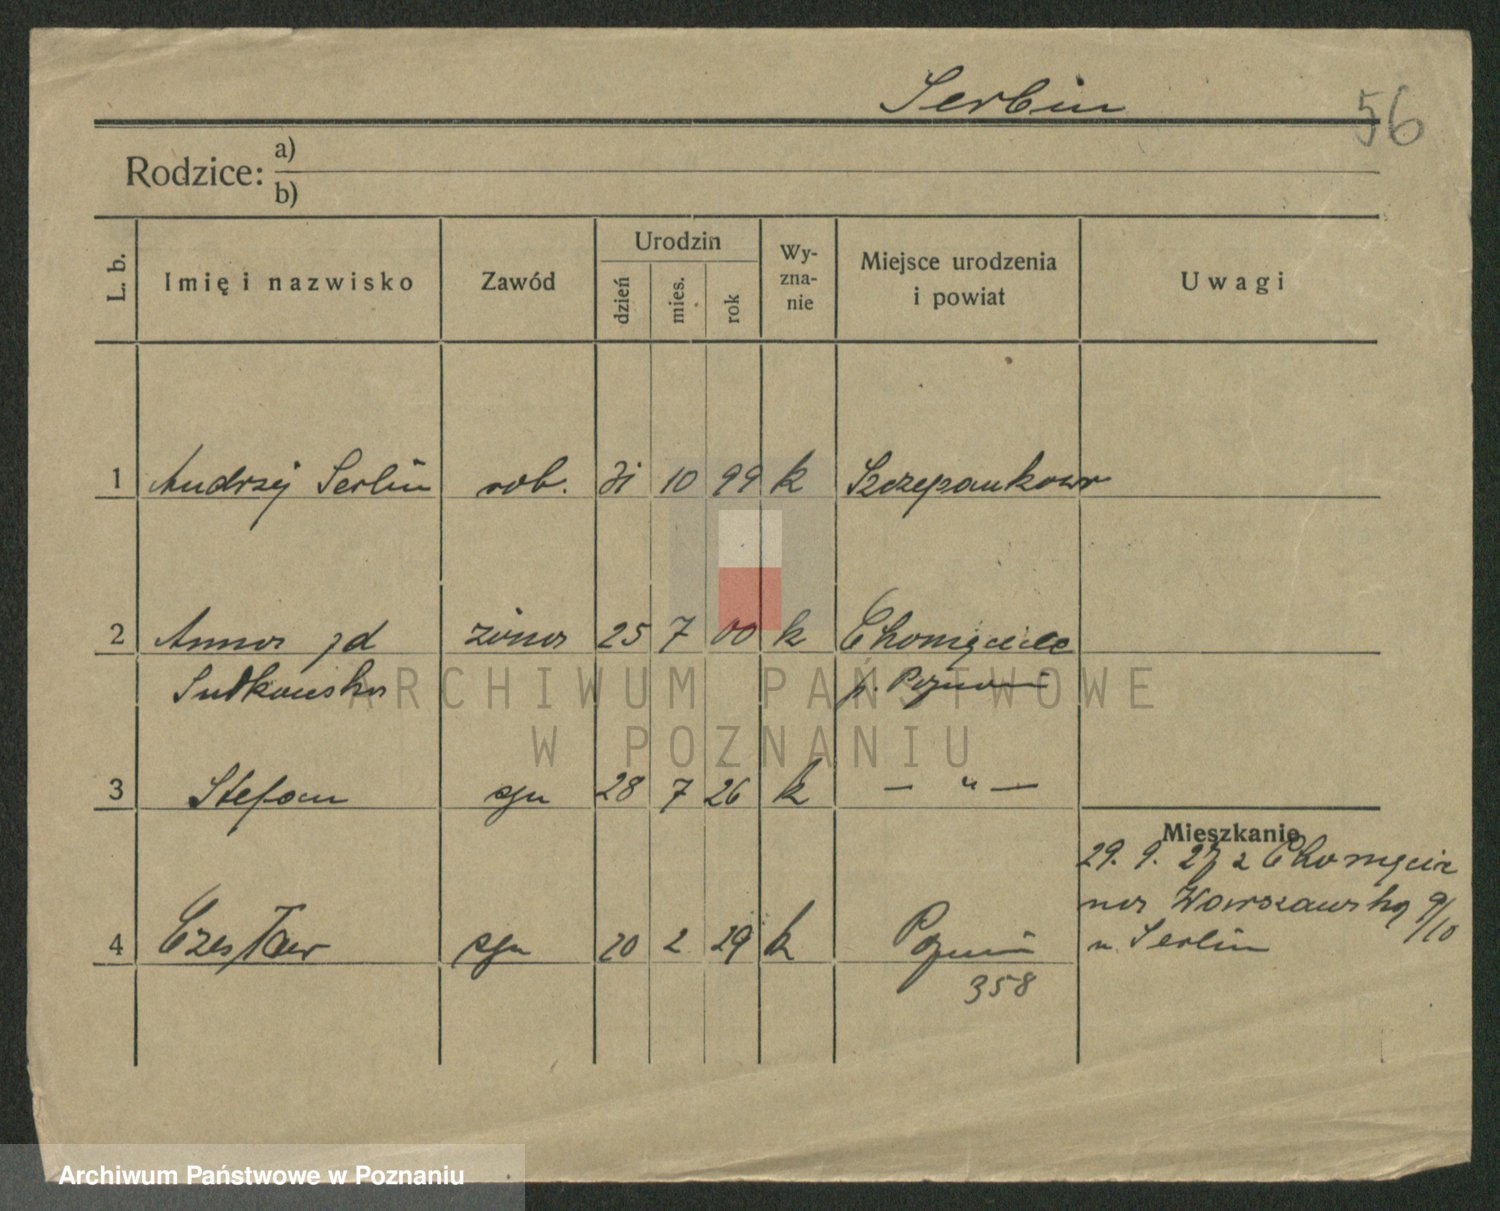 Serbin
56
Rodzice: a)
b)
L. b. Imię i nazwisko Zawód Urodzin dzień mies. rok Wy-zna-nie Miejsce urodzenia i powiat Uwagi
1 Andrzej Serbin rob. 31 10 99 k Szczepankowo
2 Anna zd żona 25 7 00 k Chomęcice
Sudkowska p. Poznań
ARCHIWUM PAŃSTWOWE
W POZNANIU
3 Stefan syn 28 7 26 k — " —
Mieszkanie
29. 9. 27 z Chomęcic
na Warszawską 9/10
u. Serbin
4 Czesław syn 20 2 29 k Poznań
358
Archiwum Państwowe w Poznaniu